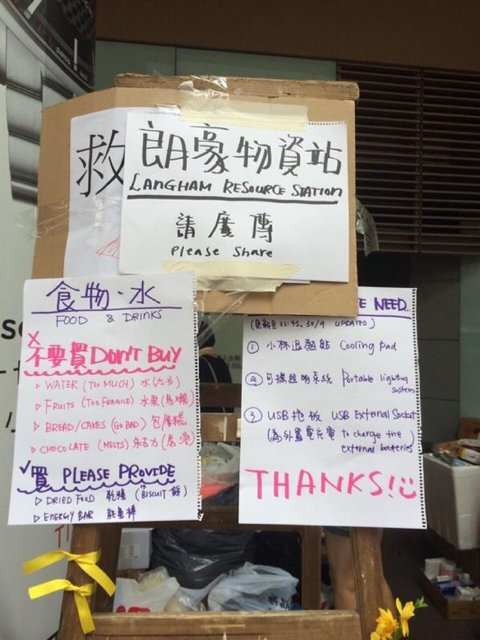 救
朗豪物資站
LANGHAM RESOURCE STATION
請廣傳
Please Share
食物·水
FOOD & DRINKS
X
不要買 DON'T BUY
▷ WATER (TOO MUCH) 水(太多)
▷ FRUITS (TOO FRAGILE) 水果
▷ BREAD/CAKES (GO BAD) 包
▷ CHOCOLATE (MELTS) 朱古力
✓買 PLEASE PROVIDE
▷ DRIED FOOD 乾糧 (BISCUIT 餅)
▷ ENERGY BAR 能量棒
NEED
30/9 UPDATED)
① 小林退熱貼 Cooling Pad
② Portable lighting system
③ USB拖板 USB External Socket
to charge the external batteries
THANKS!